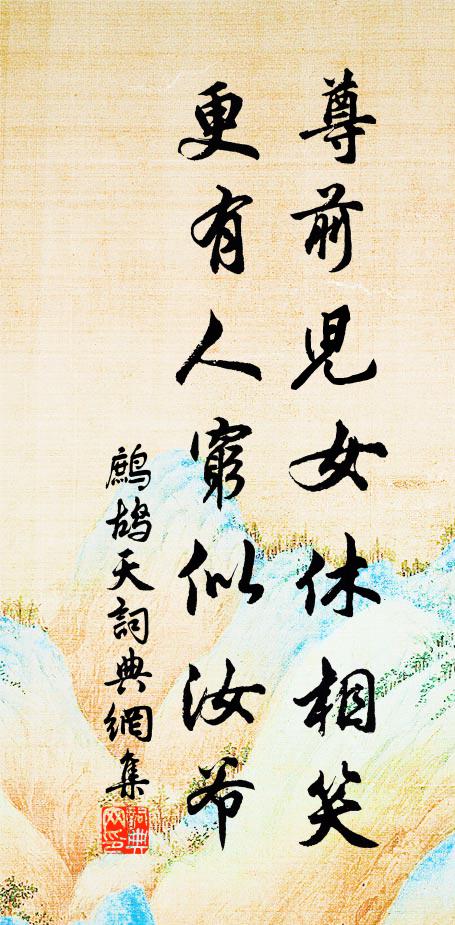 尊前兒女休相笑
更有人窮似汝爷
鷓鴣天詞典網集
詞典網印